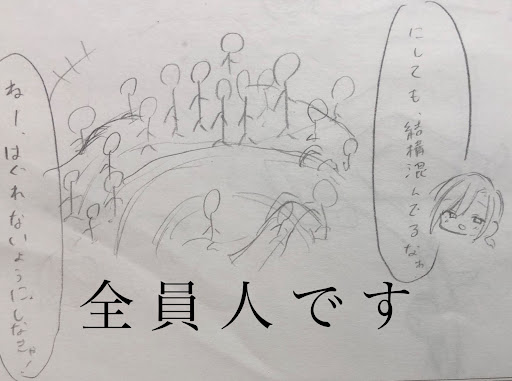 にしても、結構混んでるなぁ
ねー、はぐれないようにしなきゃ!
全員人です